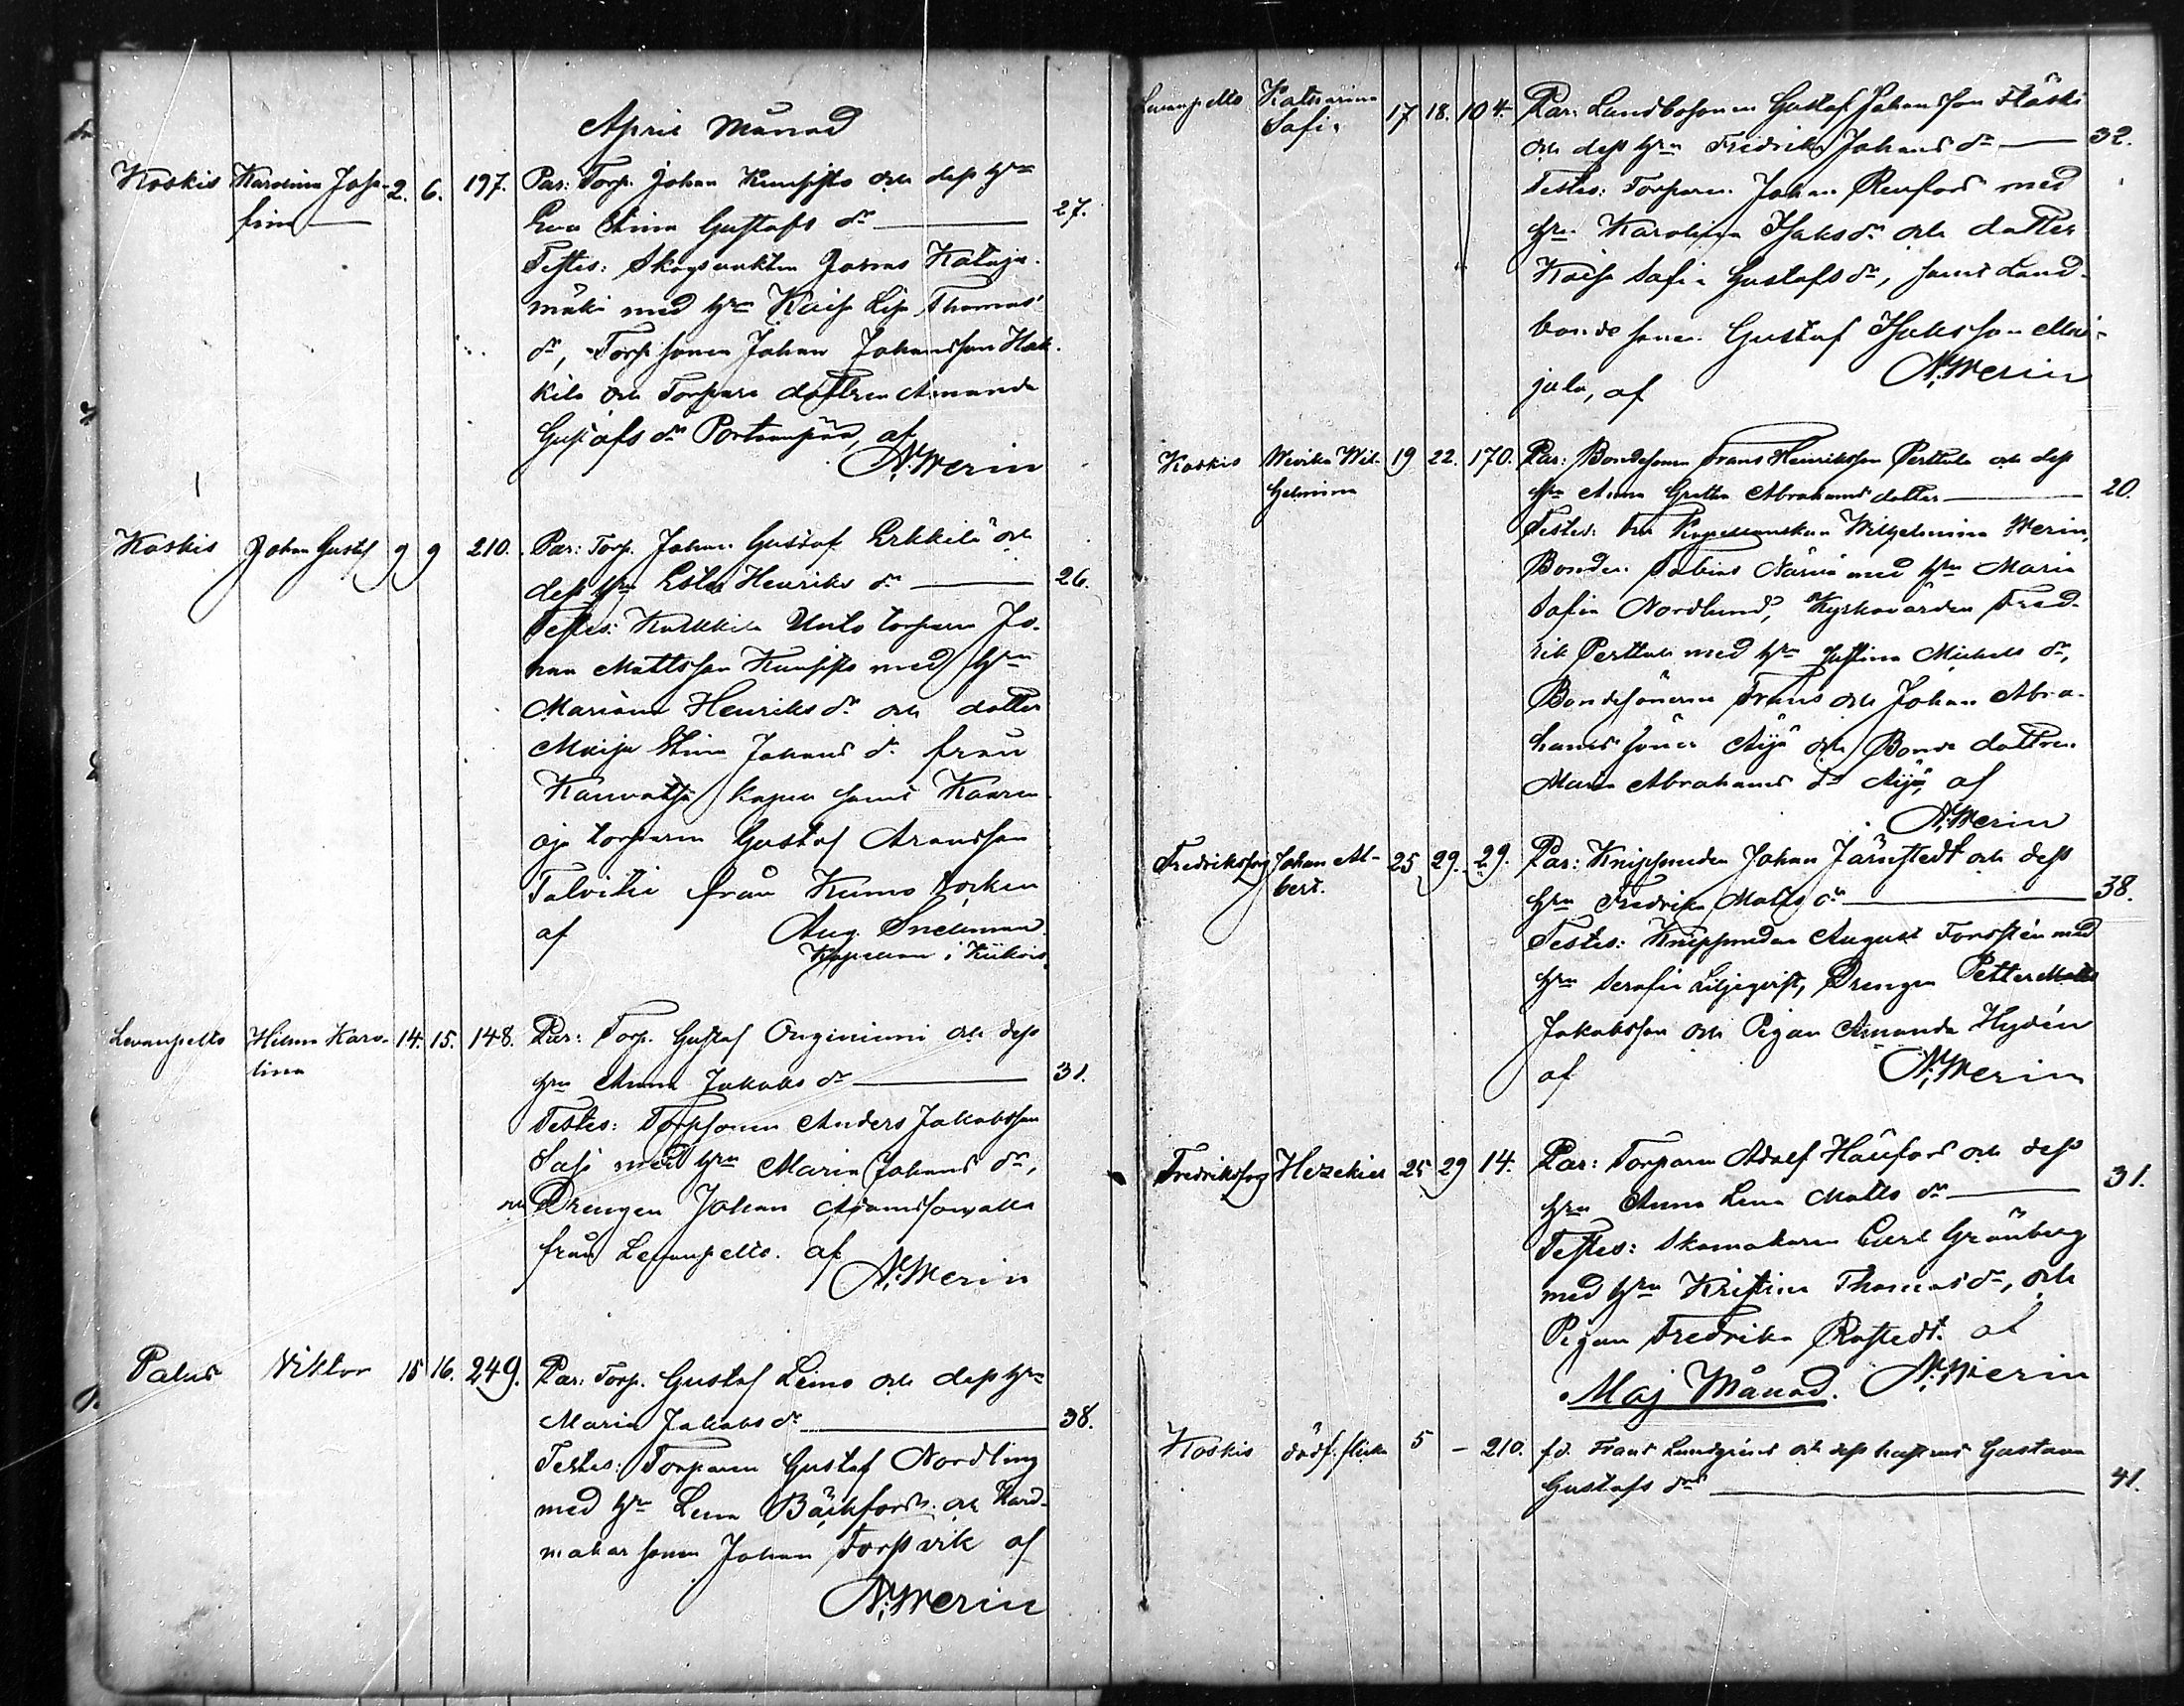 April Månad
Koskis Karolina Josefina 2. 6. 197. Par: Torp. Johan Kumpisto och dess hru
Eva Stina Gustafs dr 27.
Testes: Skogsvakten Jonas Kataja-
mäki med hru Kaisa Lisa Thomas
dr, Torp.sonen Johan Johansson Hak-
kila och Torpare dottren Amanda
Gustafs dr af
N. Werin
Koskis Johan Gustaf 9 9 210. Par: Torp. Johan Gustaf Erkkilä och
dess hru Ester Henriks dr 26.
Testes: torparen Jo-
han Mattsson Kumpisto med hru
Mariana Henriks dr och dotter
Maija Stina Johans dr från
Kauvatsa kapell samt
oja torparen Gustaf Aronsson
Talvitie från Kumo socken
af Aug. Snellman
Kapellan i Kiikois
Levanpelto Hilma Karolina 14. 15. 148. Par: Torp. Gustaf Onginiemi och dess
hru Anna Jakobs dr 31.
Testes: Torpsonen Anders Jakobsson
Sasi med hru Maria Johans dr,
och Drengen Johan Adamsson, alla
från Levanpelto. af
N. Werin
Palus Viktor 15 16. 249. Par: Torp. Gustaf Leino och dess hru
Maria Jakobs dr 38.
Testes: Torparen Gustaf Nordling
med hru Lena Bäckfors och
makar sonen Johan Forsvik af
N. Werin
Levanpelto Katharina Sofia 17 18. 104. Par: Landbosonen Gustaf Johansson Fläski
och dess hru Fredrika Johans dr 32.
Testes: Torparen Johan Renfors med
hru Karolina Isaks dr och dotter
Kaisa Sofia Gustafs dr, samt Land-
bonde sonen Gustaf Isaksson Mai-
jala, af N. Werin
Koskis Wivika Wilhelmina 19 22. 170. Par: Bondesonen Frans Henriksson Perttula och dess
hru Anna Gretha Abrahams dotter 20.
Testes: Fru Kapellanskan Wilhelmina Werin,
Bonden Tobias Närvä med hru Maria
Sofia Nordlund, Kyrkovärden Fred-
rik Perttula med hru Justina Mickels dr,
Bondesönerne Frans och Johan Abra-
hams söner Äijö och Bonde dottren
Maria Abrahams dr Äijö, af
N. Werin
Fredriksfors Johan Albert. 25 29. 29. Par: Knipsmeden Johan Järnstedt och dess
hru Fredrika Matts dr 38.
Testes: Knipsmeden August Forsstén med
hru Serafia Liljeqvist, Drengen Petter Matts
Jakobsson och Pigan Amanda Hydén
af N. Werin
Fredriksfors Hezekiel 25 29 14. Par: Torparen Adolf Haufors och dess
hru Anna Lena Matts dr 31.
Testes: Skomakaren Carl Grönberg
med hru Kristina Thomas dr, och
Pigan Fredrika Rostedt. af
Maj Månad. N. Werin
Koskis dödf. flicka 5 - 210. f.d. Frans Lundgréns och dess hustrus Gustava
Gustafs drs 41.